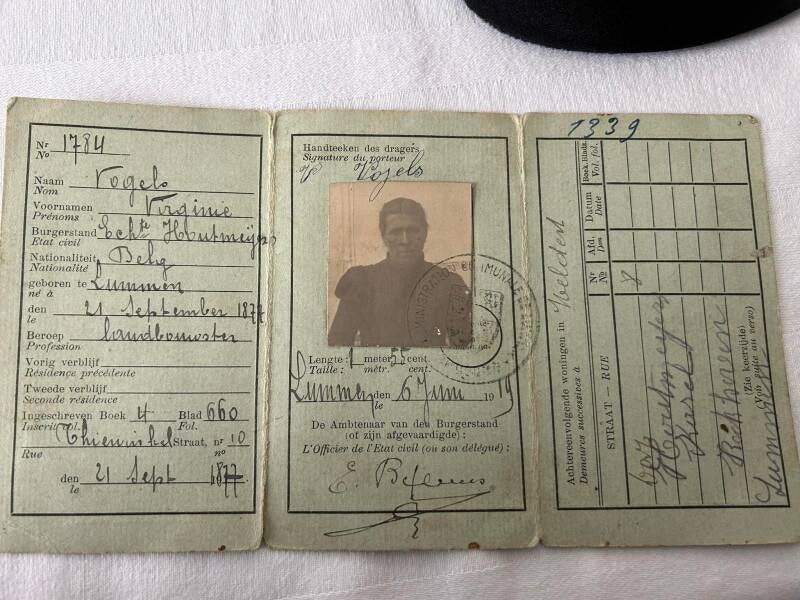 Nr
No 1784
Naam Vogels
Nom
Voornamen Virginie
Prénoms
Burgerstand Echte Houtmeyers
Etat civil
Nationaliteit Belg
Nationalité
geboren te Lummen
né à
den 21 September 1877
le
Beroep landbouwster
Profession
Vorig verblijf
Résidence précédente
Tweede verblijf
Seconde résidence
Ingeschreven Boek 4 Blad 660
Inscrit Vol. Fol.
Thiewinkel Straat, nr 10
Rue no
den 21 Sept 1877
le
Handteeken des dragers
Signature du porteur
V Vogels
ADMINISTRATION COMMUNALE
Lengte: 1 meter 55 cent.
Taille: mètr. cent.
Lummen den 6 Juni 1919
le
De Ambtenaar van den Burgerstand
(of zijn afgevaardigde):
L'Officier de l'Etat civil (ou son délégué):
1339
Achtereenvolgende woningen in
Demeures successives à
STRAAT - RUE
Nr
No
Afd.
Don
Datum
Date
Boek. Bladz.
Vol. fol.
8
Houtmeyers
Karel
Lummen
(Zie keerzijde)
Voir suite au verso)